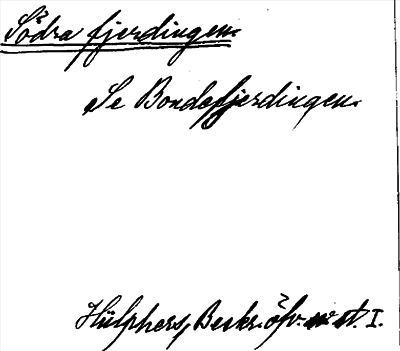 Södra fjerdingen.
Se Bondefjerdingen.
Hülphers, Beskr. öfv. st. I.